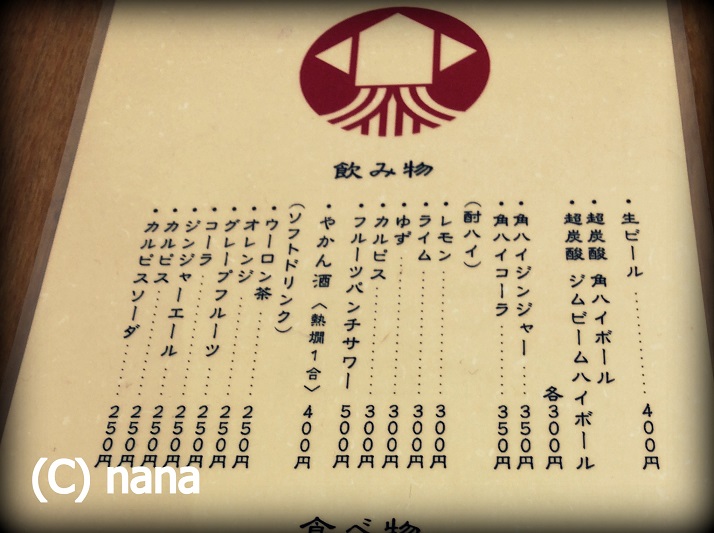 飲み物
・生ビール…………400円
・超炭酸 角ハイボール
・超炭酸 ジムビームハイボール
各300円
・角ハイジンジャー…350円
・角ハイコーラ………350円
(酎ハイ)
・レモン…………300円
・ライム…………300円
・ゆず…………300円
・カルピス…………300円
・フルーツパンチサワー 500円
・やかん酒〈熱燗1合〉400円
(ソフトドリンク)
・ウーロン茶…………250円
・オレンジ…………250円
・グレープフルーツ…250円
・コーラ…………250円
・ジンジャーエール…250円
・カルピス…………250円
・カルピスソーダ……250円
食べ物
(C) nana